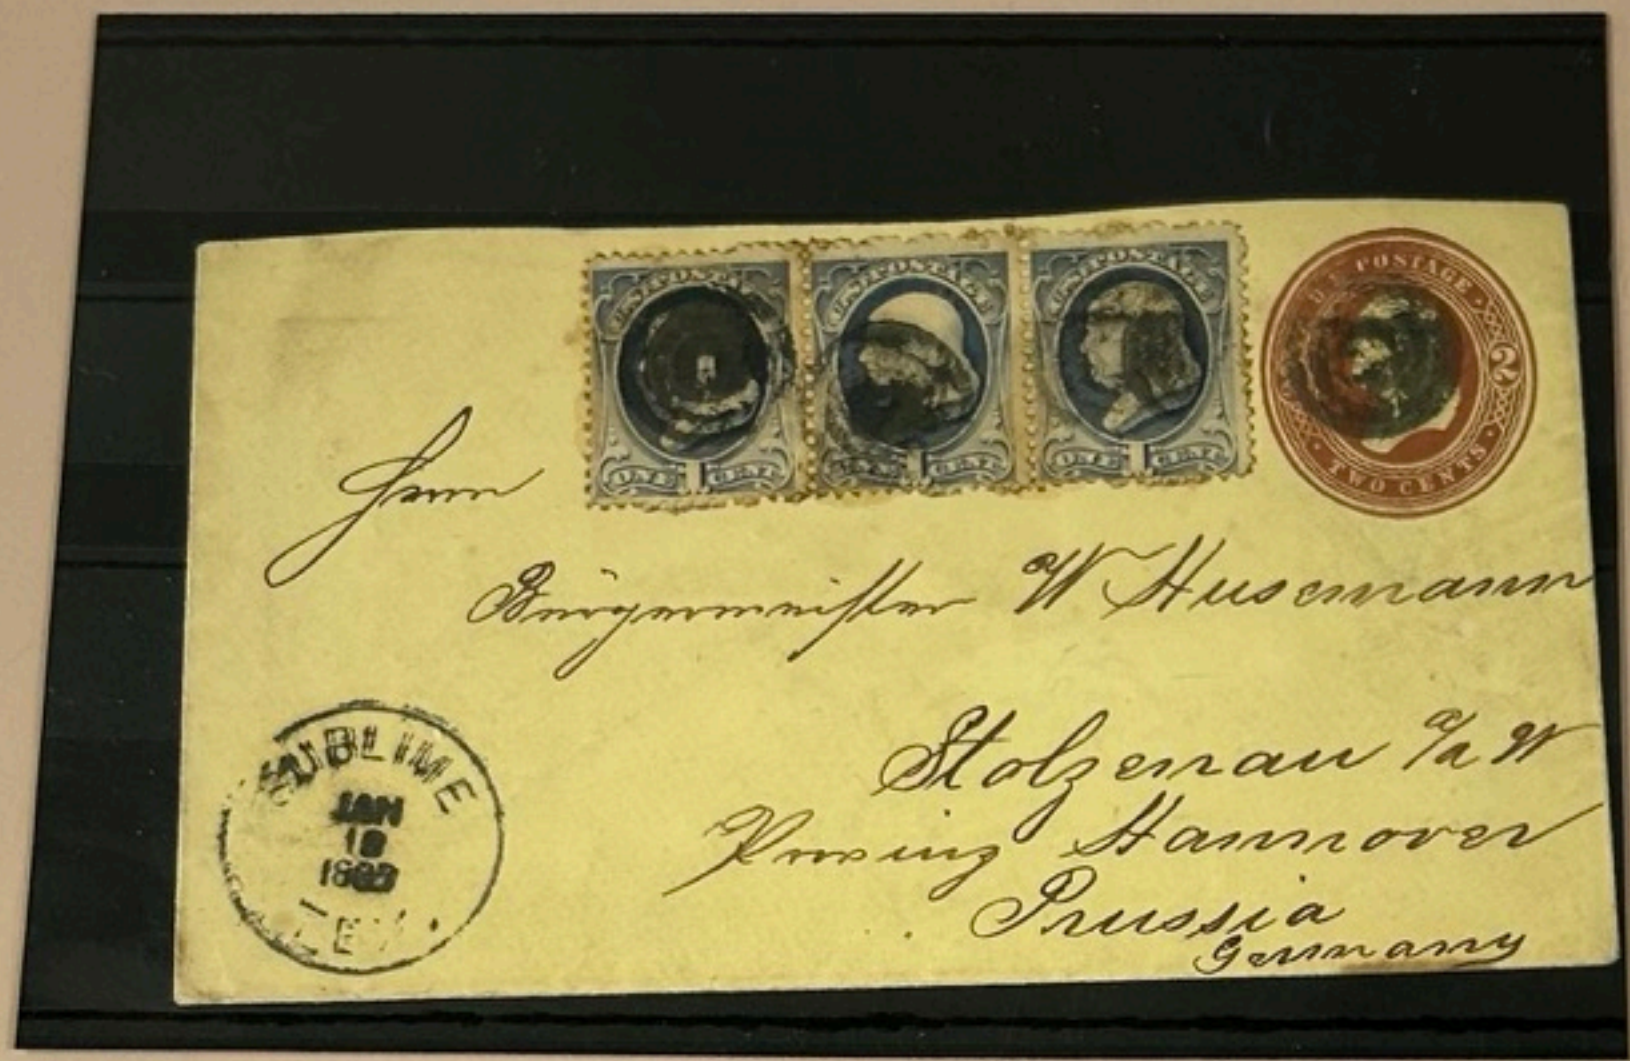 U.S. POSTAGE
ONE 1 CENT
U.S. POSTAGE
1 CENT
U.S. POSTAGE
ONE 1 CENT
U.S. POSTAGE
2
TWO CENTS
Herrn
Bürgermeister W Husemann
Stolzenau a/a W
Provinz Hannover
Prussia
Germany
SUBLIME
JAN
TEX.